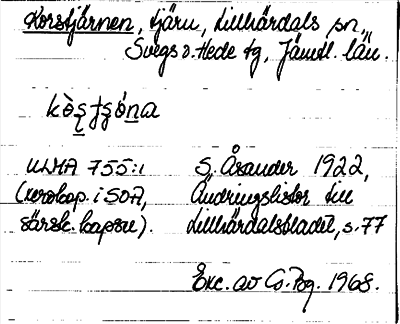 Korstjärnen, tjärn, Lillhärdals sn,
Svegs o. Hede tg, Jämtl. län.
ULMA 755:1 S. Åsander 1922,
(xerokop. i SOA, Ändringslistor till
särsk. kapsel). Lillhärdalsbladet, s. 77
Exc. av Co. Pog. 1968.